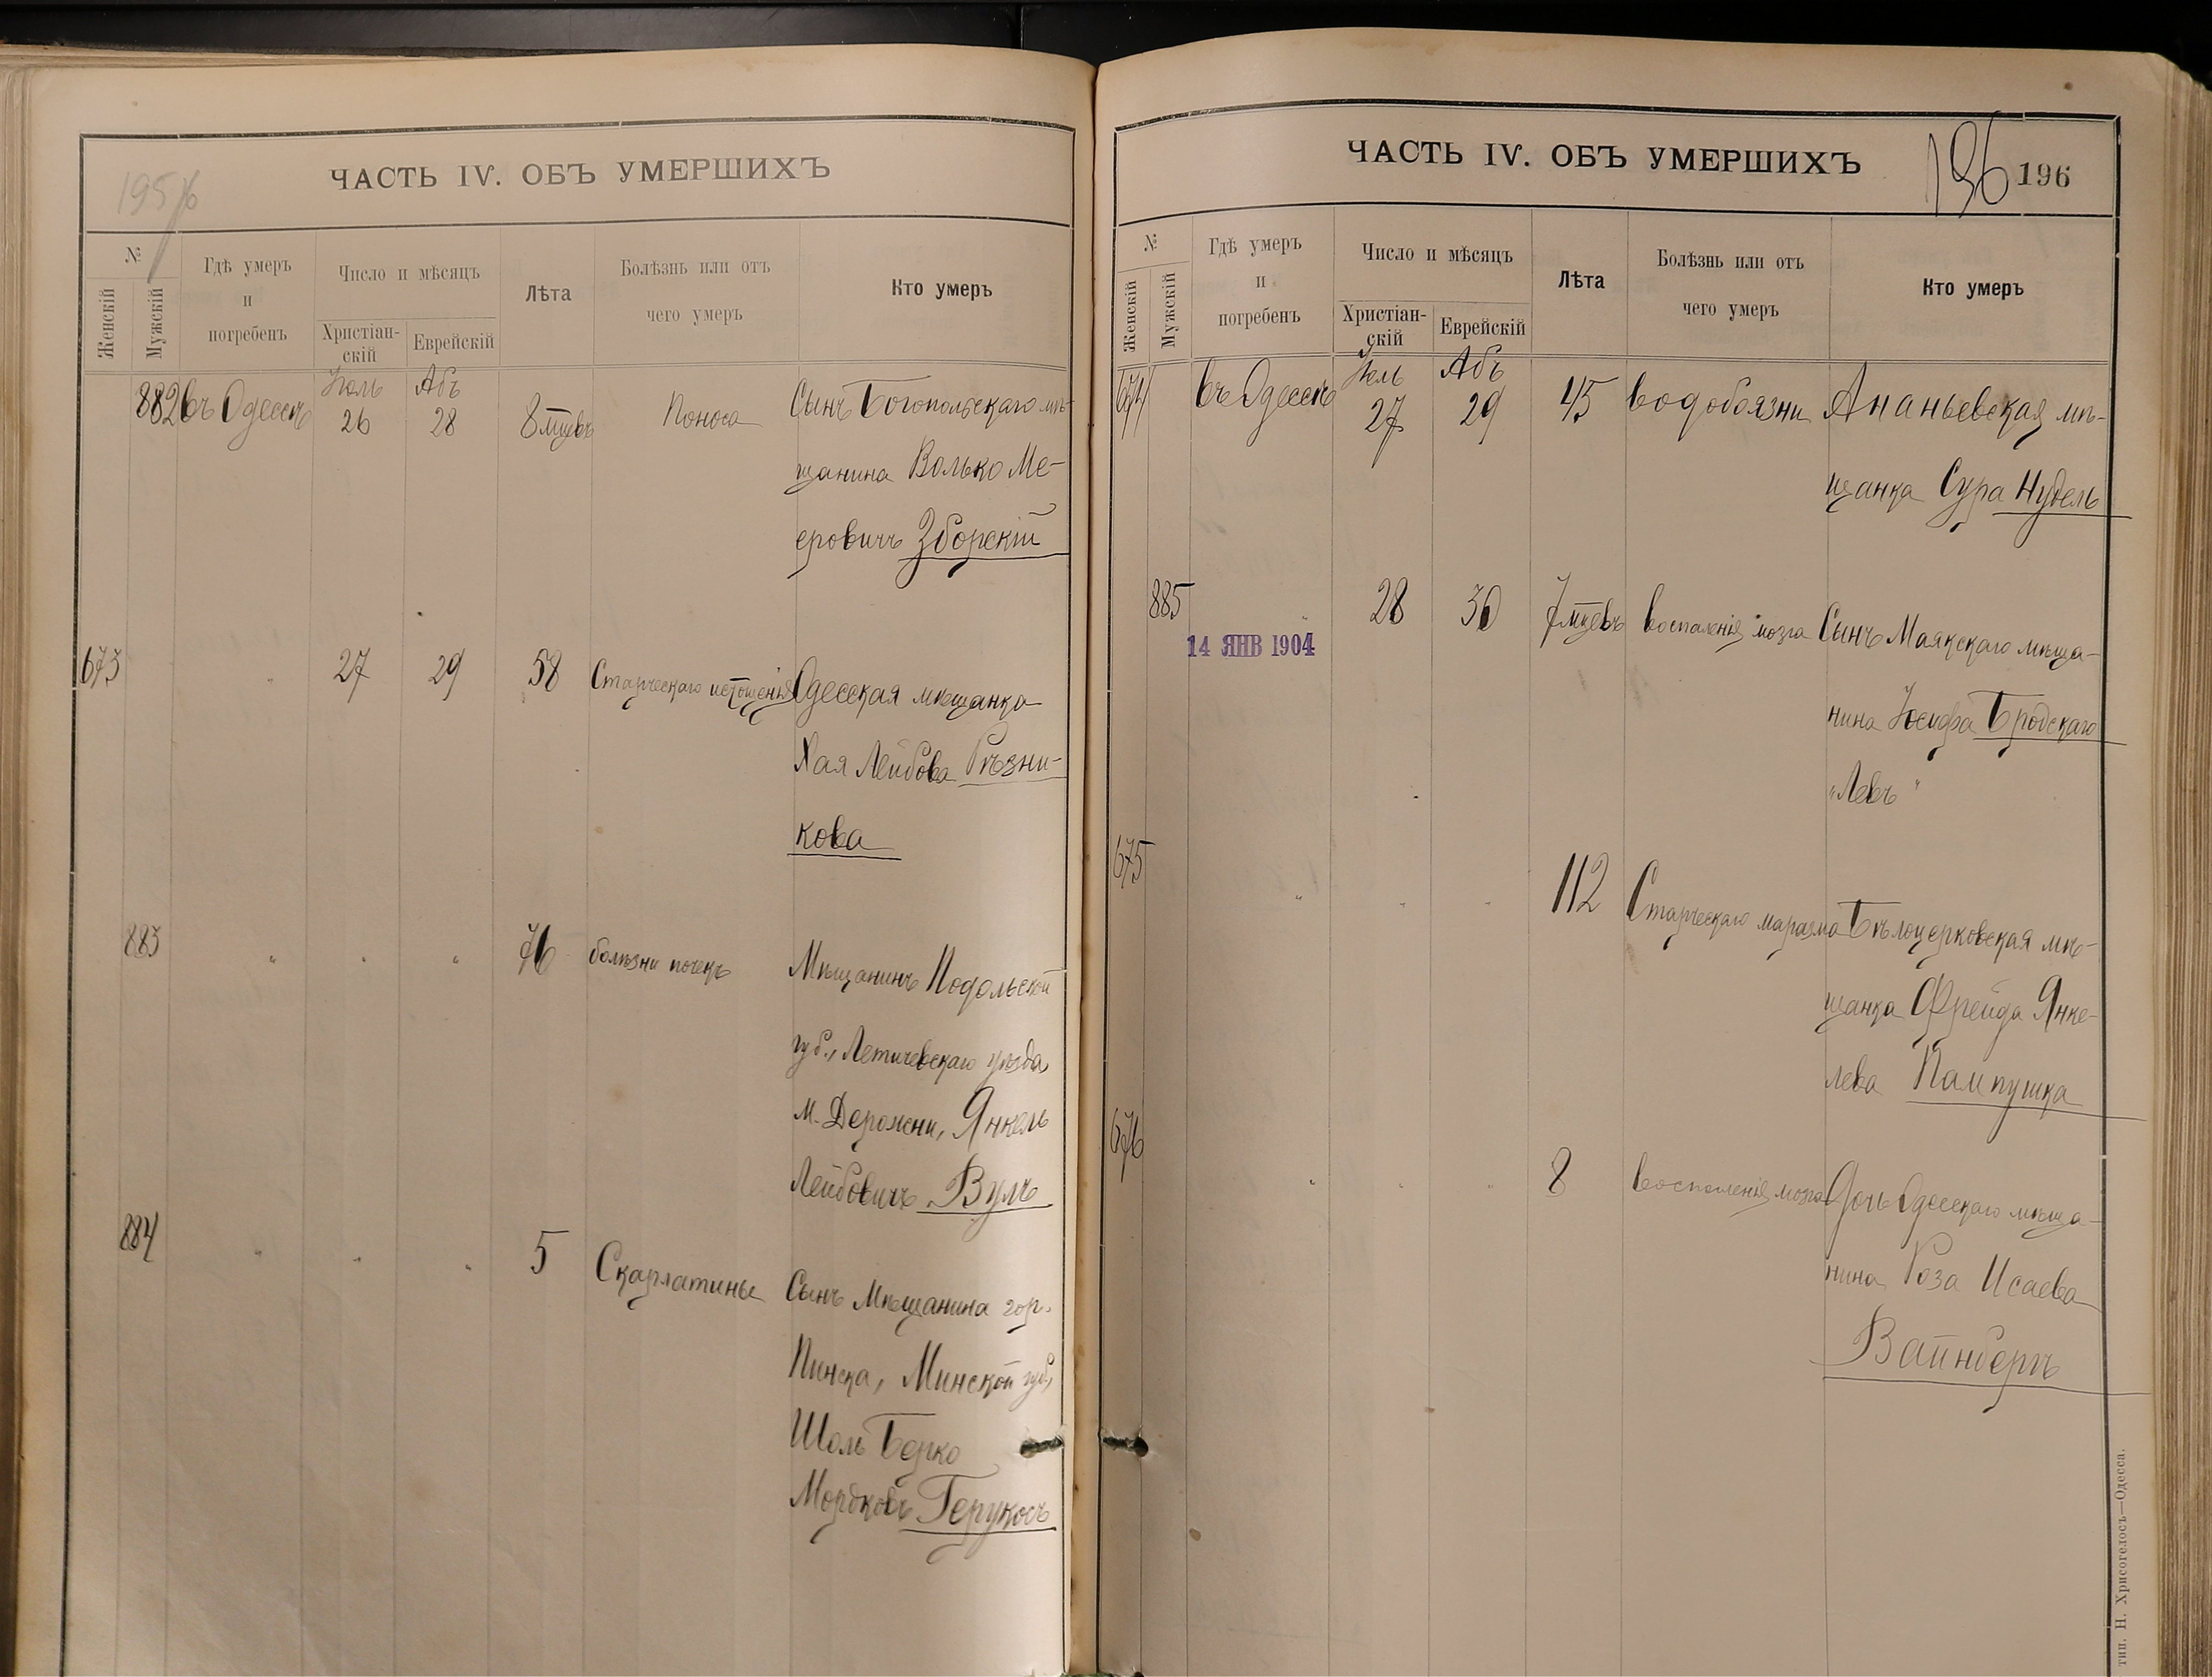 ЧАСТЬ IV. ОБЪ УМЕРШИХЪ
№
Женскій
Мужскій
Гдѣ умеръ
и
погребенъ
Число и мѣсяцъ
Христіан-
скій
Еврейскій
Лѣта
Болѣзнь или отъ
чего умеръ
Кто умеръ
Іюль Абъ
882 въ Одессѣ 26 28 8 мцевъ Поноса Сынъ Богопольскаго мѣ-
щанина Волько Ме-
еровичъ Зборскій
673 " 27 29 58 Старческаго истощенія Одесская мѣщанка
Хая Лейбова Рѣзни-
кова
883 " " " 76 болѣзни почекъ Мѣщанинъ Подольской
губ., Летичевскаго уѣзда,
м. Деражни, Янкель
Лейбовичъ Вулъ
884 " " " 5 Скарлатины Сынъ Мѣщанина гор.
Пинска, Минской губ.,
Шоль Берко
Мордковъ Герукосъ
ЧАСТЬ IV. ОБЪ УМЕРШИХЪ
196 196
№
Женскій
Мужскій
Гдѣ умеръ
и
погребенъ
Число и мѣсяцъ
Христіан-
скій
Еврейскій
Лѣта
Болѣзнь или отъ
чего умеръ
Кто умеръ
Іюль Абъ
674 въ Одессѣ 27 29 45 водобоязни Ананьевская мѣ-
щанка Сура Нудель
885 " 28 30 7 мцевъ воспаленія мозга Сынъ Маякскаго мѣща-
14 ЯНВ 1904
нина Іосифа Бродскаго
"Левъ"
675 " " " 112 Старческаго маразма Бѣлоцерковская мѣ-
щанка Фрейда Янке-
лева Пампушка
676 " " " 8 воспаленія мозга Дочь Одесскаго мѣща-
нина Роза Исаева
Вайнберъ
тип. Н. Хрисогелосъ—Одесса.